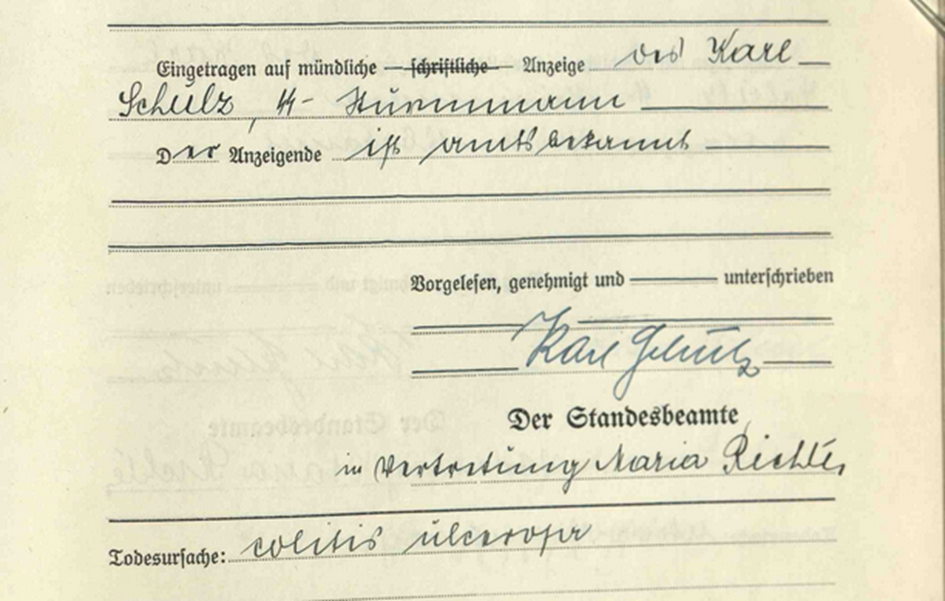 Eingetragen auf mündliche — schriftliche — Anzeige des Karl
Schulz, ᛋᛋ- Sturmmann
Der Anzeigende ist amtsbekannt
Vorgelesen, genehmigt und unterschrieben
Karl Schulz
Der Standesbeamte
in Vertretung Maria Richter
Todesursache: colitis ulcerosa